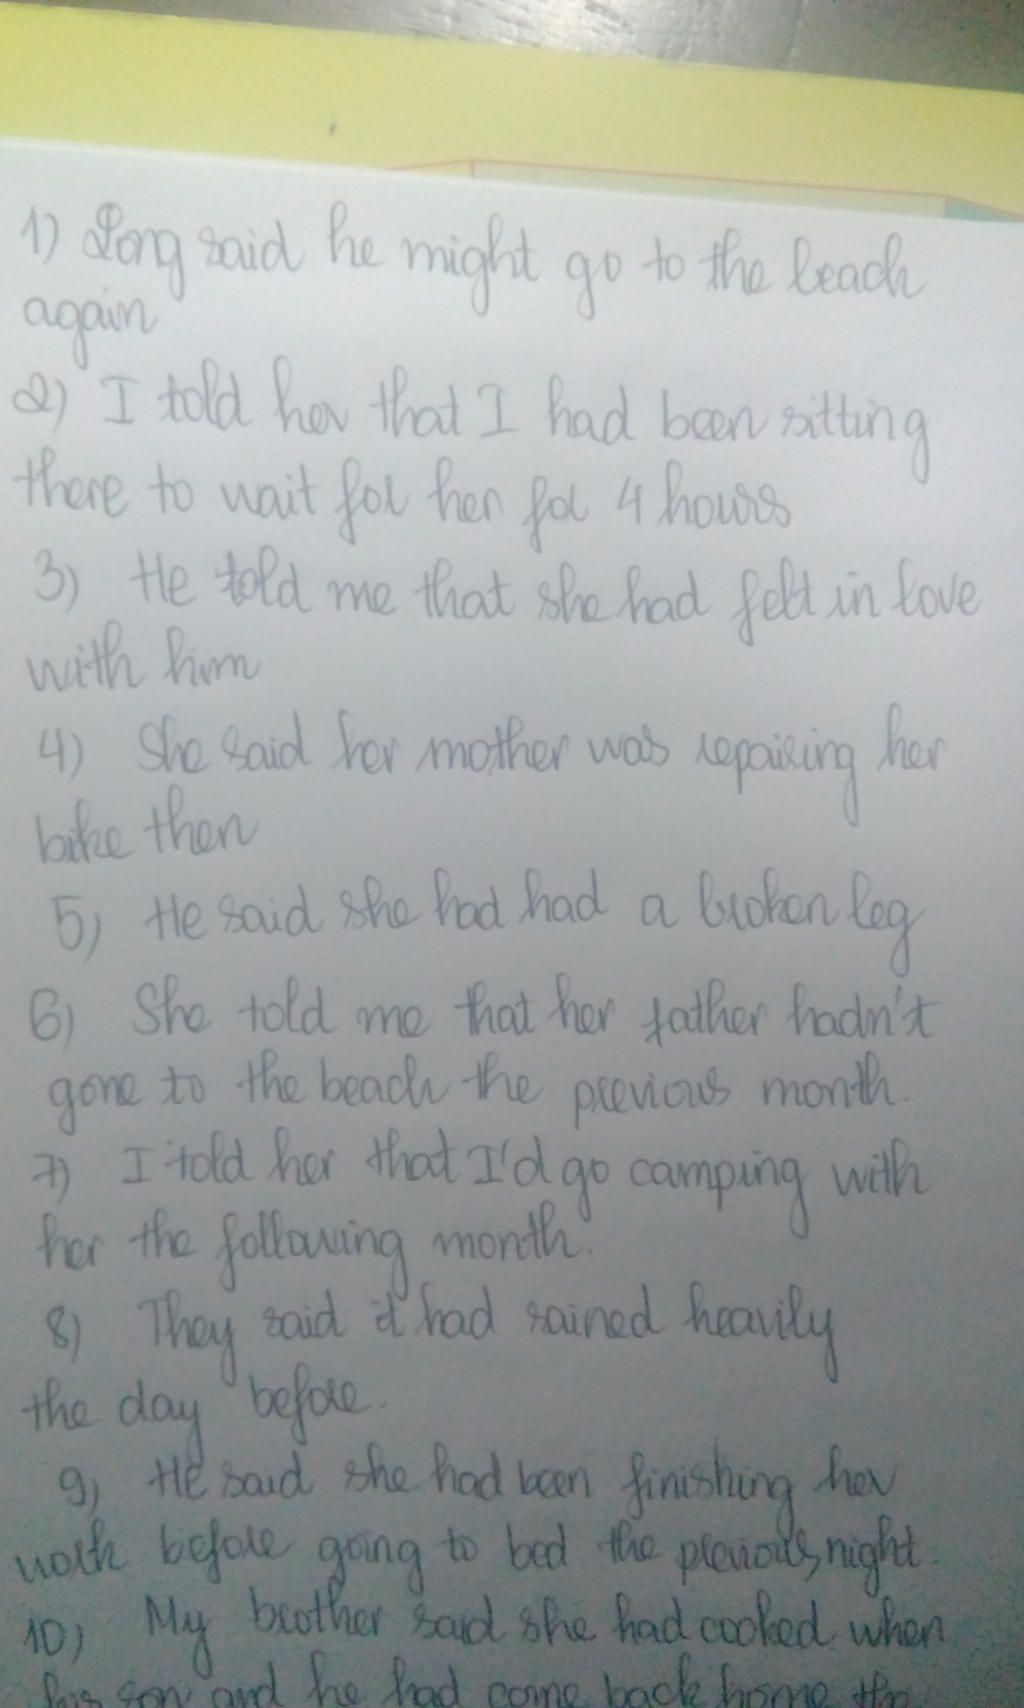 1) Long said he might go to the beach
again
2) I told her that I had been sitting
there to wait for her for 4 hours
3) He told me that she had felt in love
with him
4) She said her mother was repairing her
bike then
5) He said she had had a broken leg
6) She told me that her father hadn't
gone to the beach the previous month.
7) I told her that I'd go camping with
her the following month.
8) They said it had rained heavily
the day before.
9) He said she had been finishing her
work before going to bed the previous night.
10) My brother said she had cooked when
his son and he had come back home the